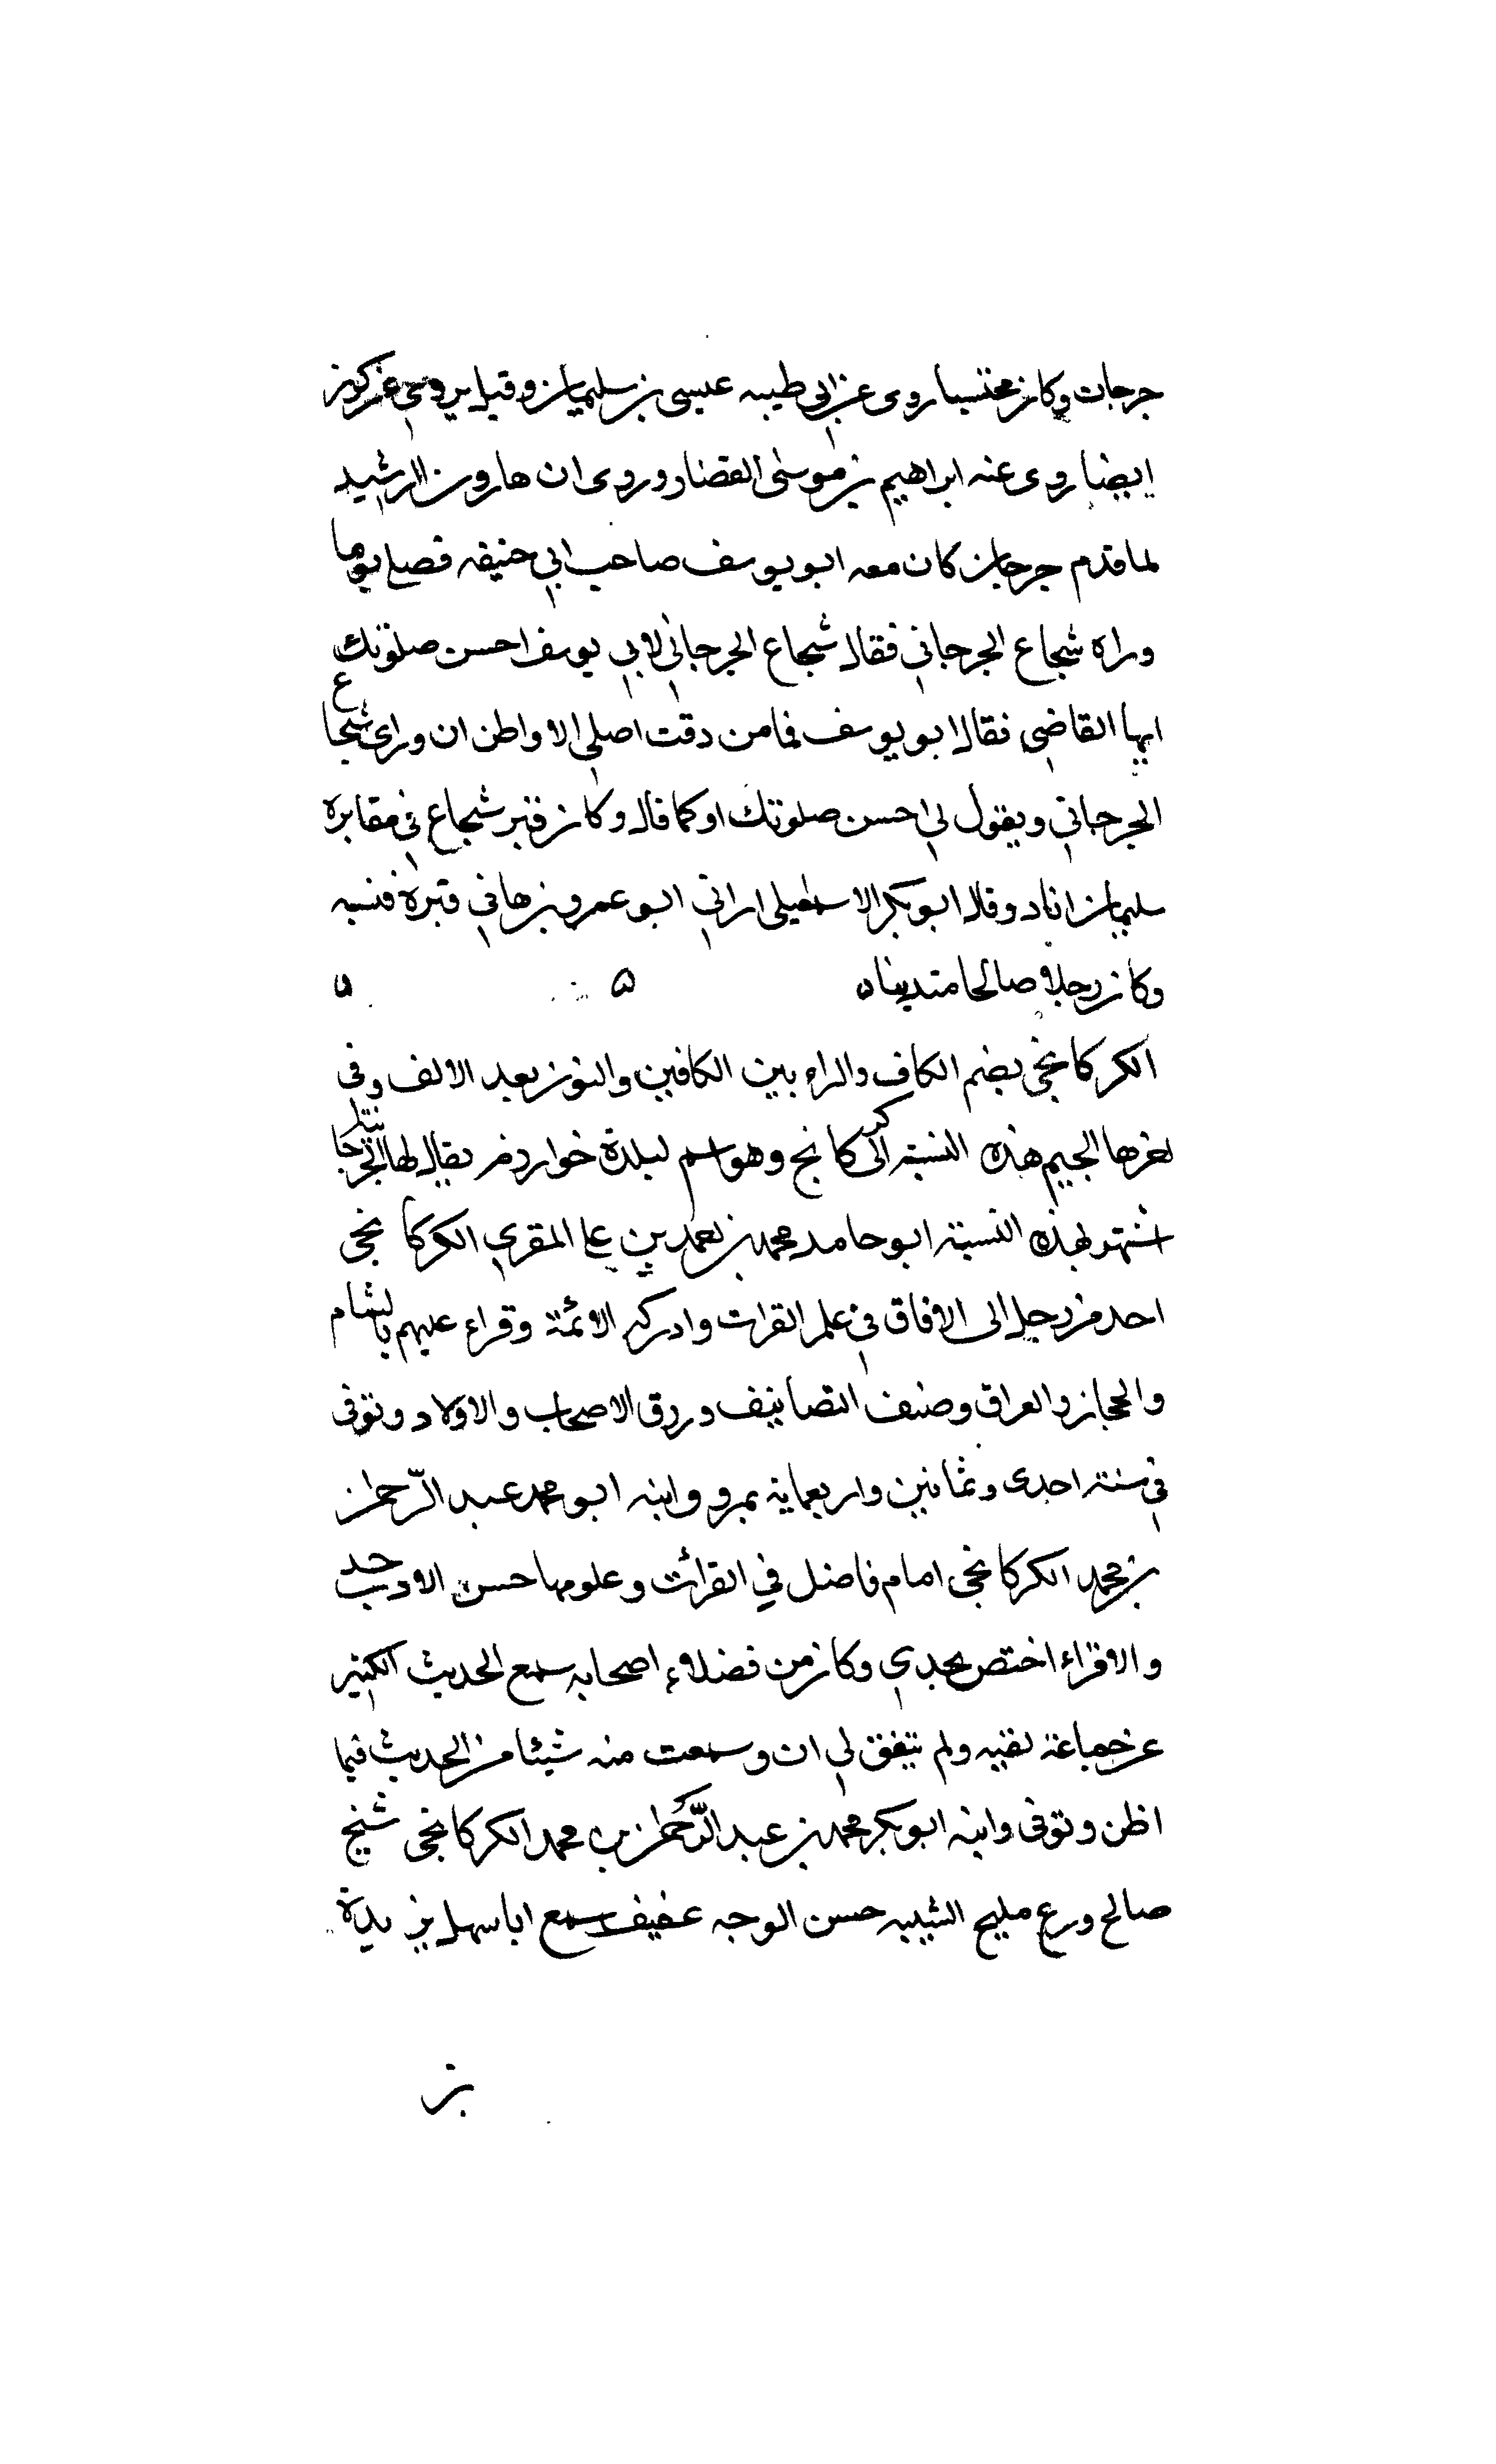 جرجان وكان محتسبا روى عن ابي طيبه عيسى بن سليمان وقيل يروى عن كرز
ايضا روى عنه ابراهيم بن موسى القصار وروى ان هارون الرشيد
لما قدم جرجان كان معه ابو يوسف صاحب ابي حنيفه فصلى يوما
وراه شجاع الجرجاني فقال شجاع الجرجاني لابي يوسف احسن صلوتك
ايها القاضي فقال ابو يوسف فما من دقت اصلي الا واطن ان وراى شجاع
الجرجاني ويقول لي احسن صلوتك او كما قال وكان قبر شجاع في مقابره
سليمان اناد وقال ابو بكر الاسمعيلى اراني ابو عمرو بن هاني قبره فنسبه
وكان رجلا صالحا متدينا ه ه ه
الكركانجى بضم الكاف والراء بين الكافين والنون بعد الالف وفى
اخرها الجيم هذه النسبة الى كركانج وهو اسم لبلدة خوارزم يقال لها الجرجانية
اشتهر لهذه النسبة ابو حامد محمد بن احمد بن على المقري الكركانجى
احد من رحل الى الافاق في علم القرات وادرك الائمة وقراء عليهم بالشام
والحجاز والعراق وصنف التصانيف ورزق الاصحاب والاولاد وتوفى
في سنة احدى وثمانين واربعماية بمرو وابنه ابو محمد عبد الرّحمن
بن محمد الكركانجى امام فاضل في القرائت وعلومها حسن الاخد
والاقراء اختص بجدي وكان من فضلاء اصحابه سمع الحديث الكثير
عن جماعة لقيه ولم يتفق لي ان وسمعت منه شيئا من الحديث فيما
اظن وتوفى وابنه ابو بكر محمد بن عبد الرّحمن بن محمد الكركانجى شيخ
صالح ورع مليح الشيبه حسن الوجه عفيف سمع ابا سهل بريدة
بن